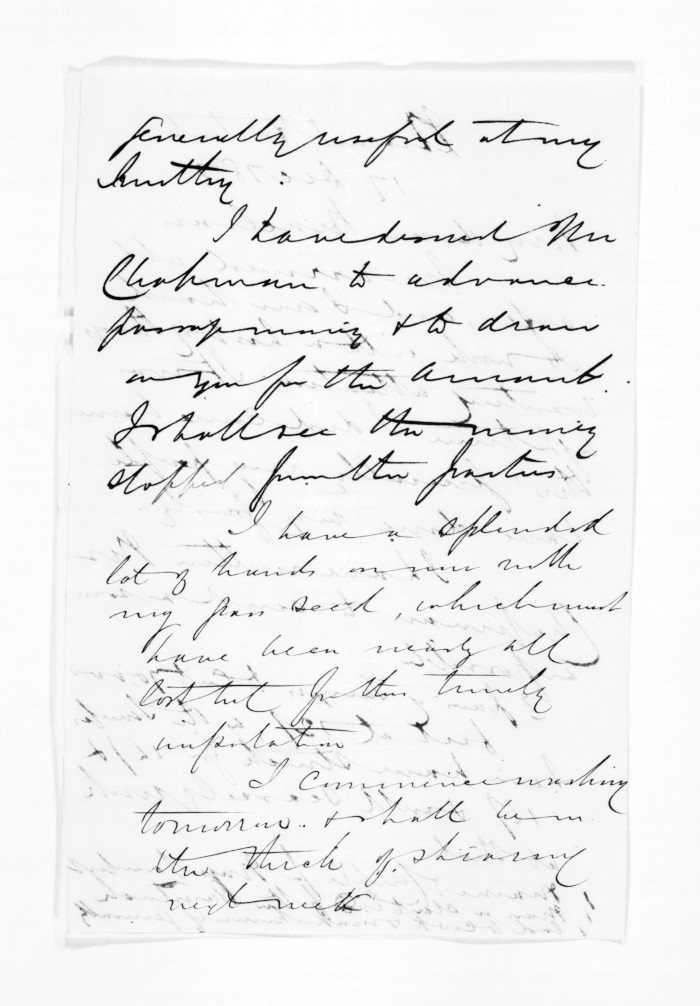 generally useful at my
smithy.
I have desired Mr
Chapman to advance
passage money & to draw
on you for the amount.
I shall see the money
stopped from the parties
I have a splendid
lot of hands on now with
my grass seed, which must
have been nearly all
lost but for this timely
importation
I commence washing
tomorrow & shall be in
the thick of shearing
next week